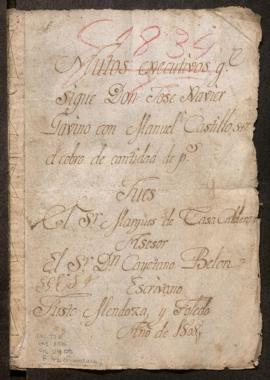 Autos executivos q.e
Sigue Don Jose Xavier
Gavino con Manuel Castillo, sre
el cobro de cantidad de p.s
Jues
El Sr Marques de Casa Calderon
Asesor
El Sr. Dn Cayetano Belon
Escrivano
Justo Mendoza, y Toledo
Año de 180